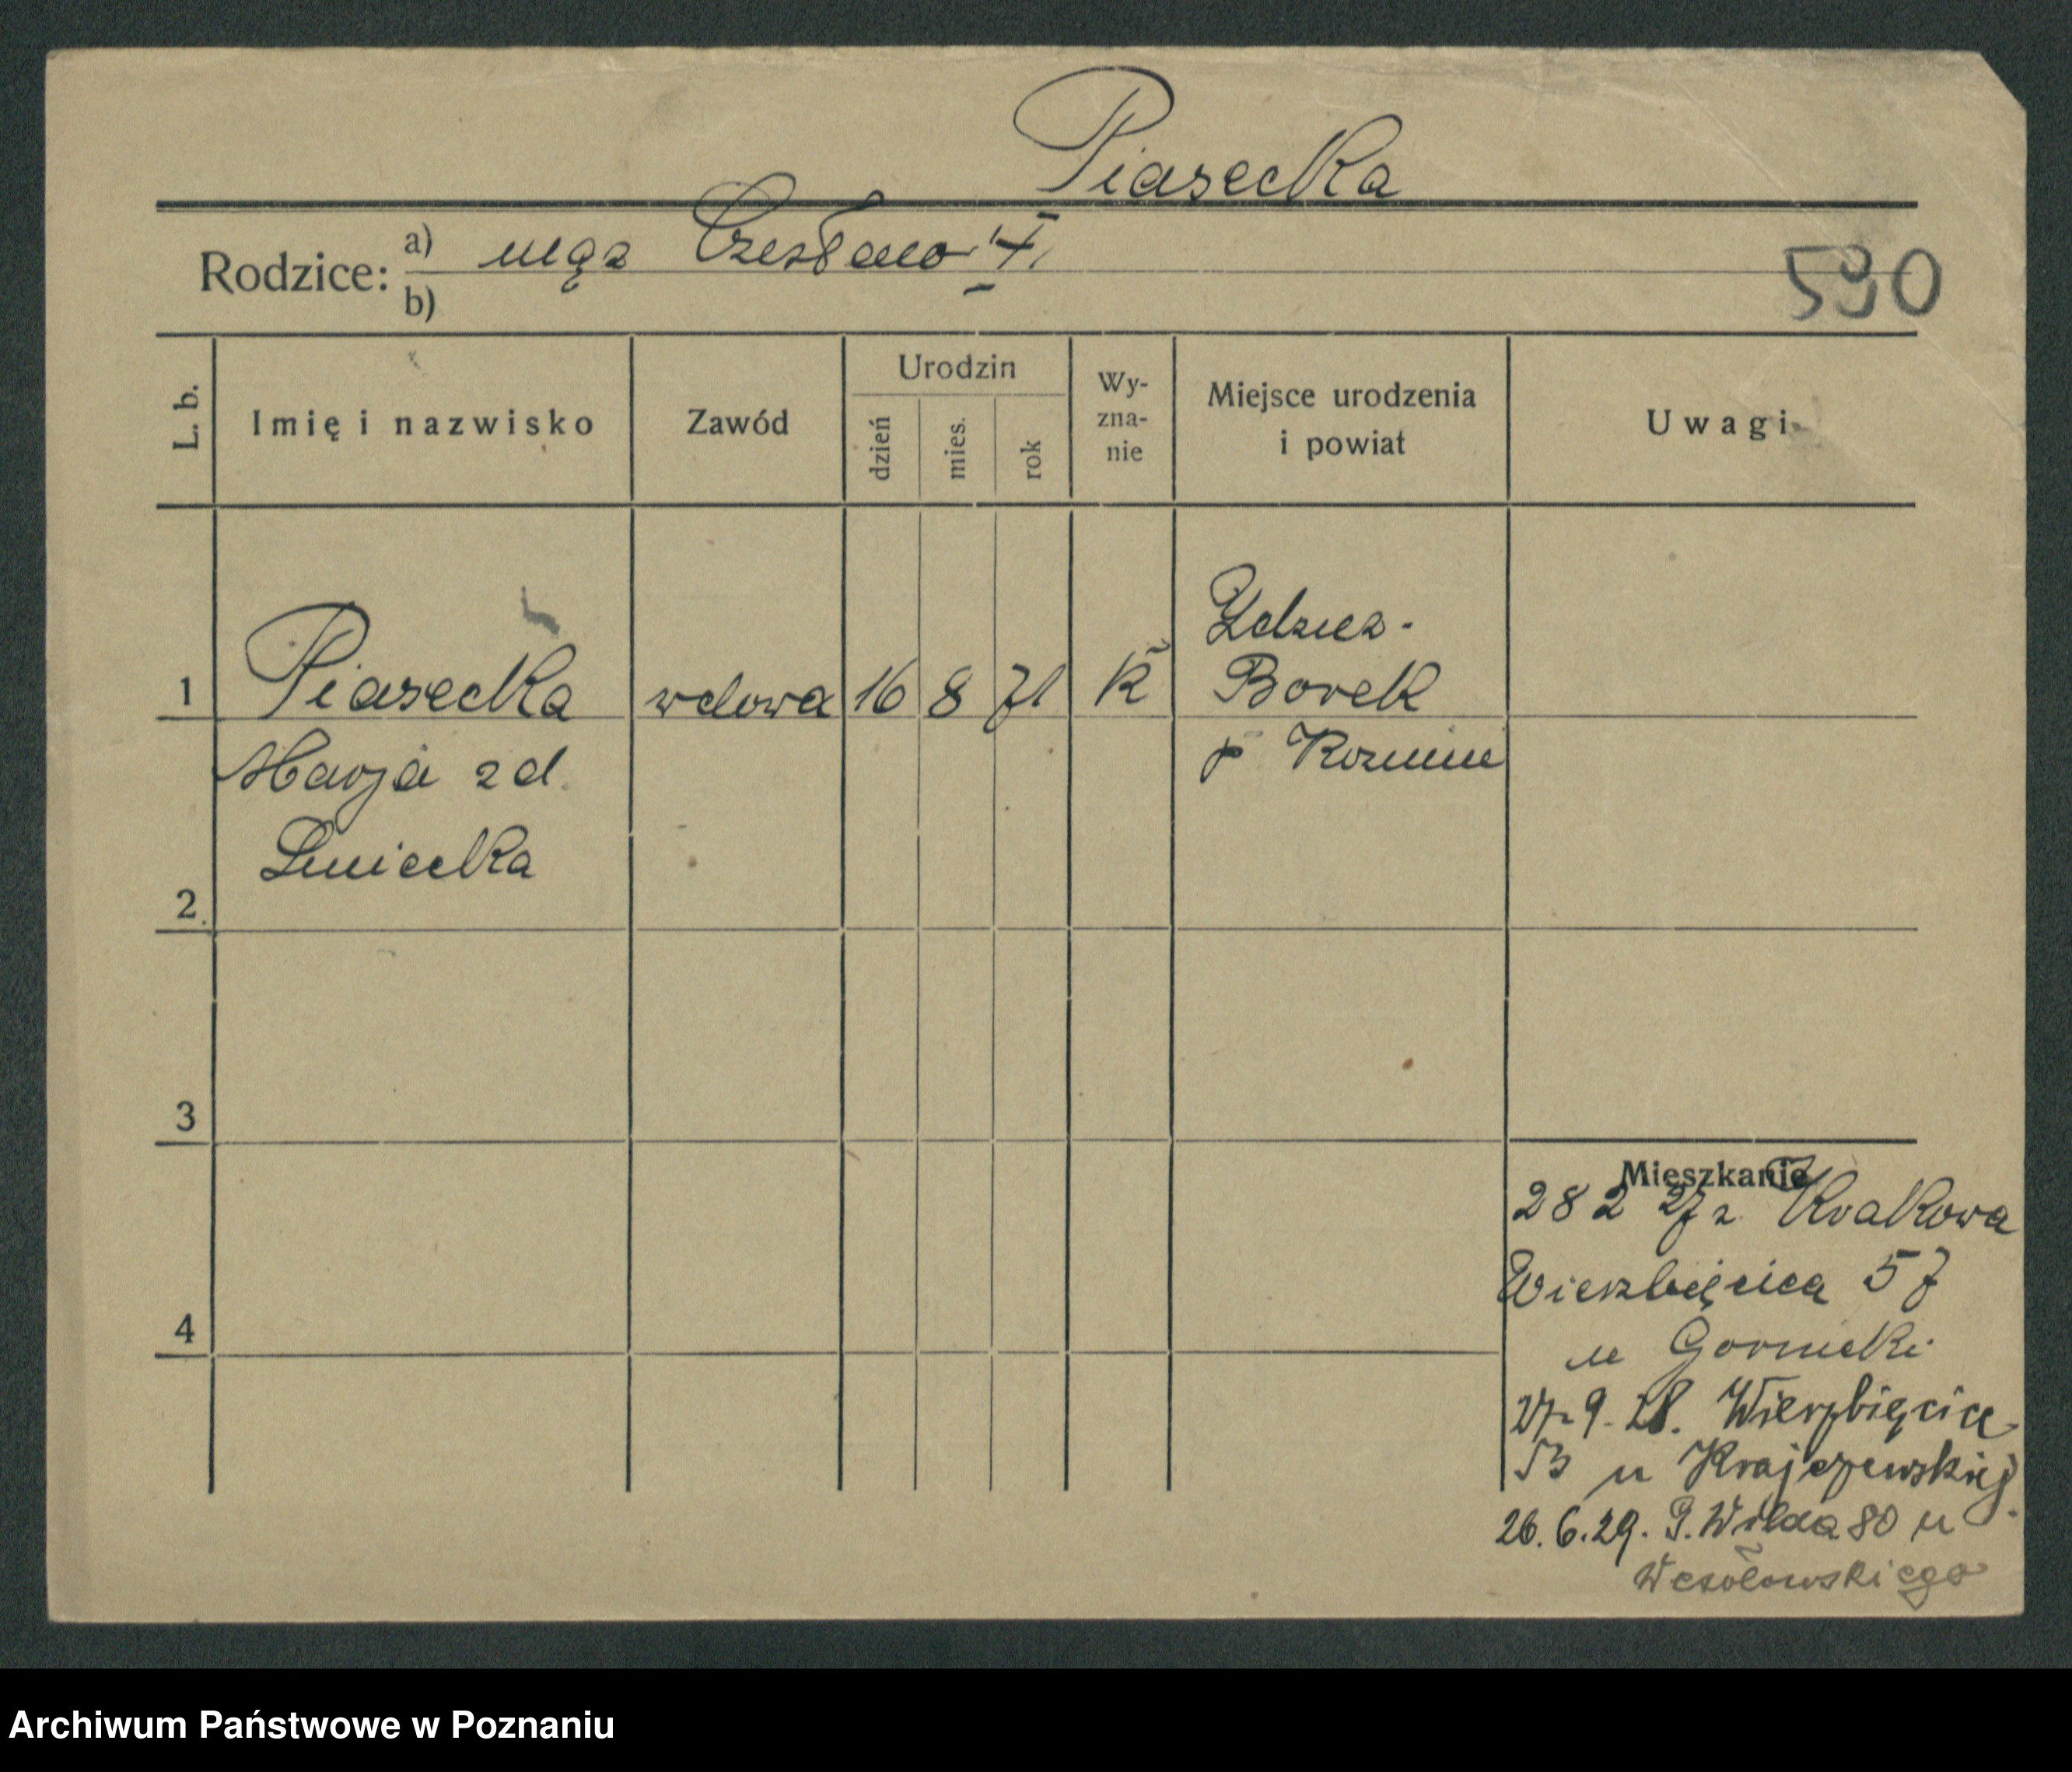 Piasecka
Rodzice: a) mąż Czesław †
b)
590
L. b.
Imię i nazwisko
Zawód
Urodzin
dzień
mies.
rok
Wy-
zna-
nie
Miejsce urodzenia
i powiat
Uwagi
1 Piasecka wdowa 16 8 71 k
Borek
Marja z d.
p Kozmin
2
3
4
Mieszkanie
28 2 27 z Krakowa
Wierzbięcice 57
u Gornicki
27.9.28. Wierzbięcice
u Krajczewskiej
26.6.29. G. Wilda 80 u
Wesołowskiego
Archiwum Państwowe w Poznaniu